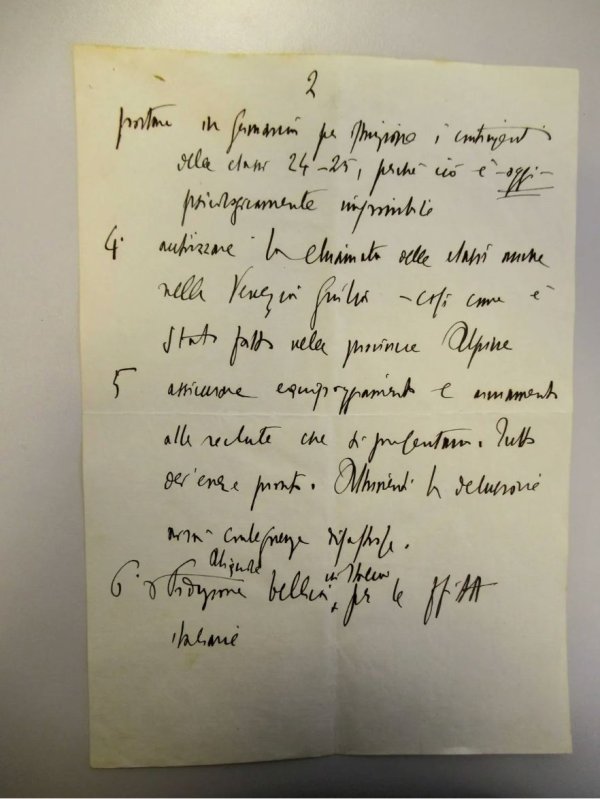 2
portare in Germania per istruzione i contingenti
delle classi 24-25, perché ciò è -oggi-
psicologicamente impossibile
4° autorizzare la chiamata delle classi anche
nella Venezia Giulia - così come è
stato fatto nelle provincie Alpine
5 assicurare equipaggiamento e armamento
alle reclute che si presentano. Tutto
dev'essere pronto. Altrimenti la delusione
avrà conseguenze disastrose.
6°
italiane